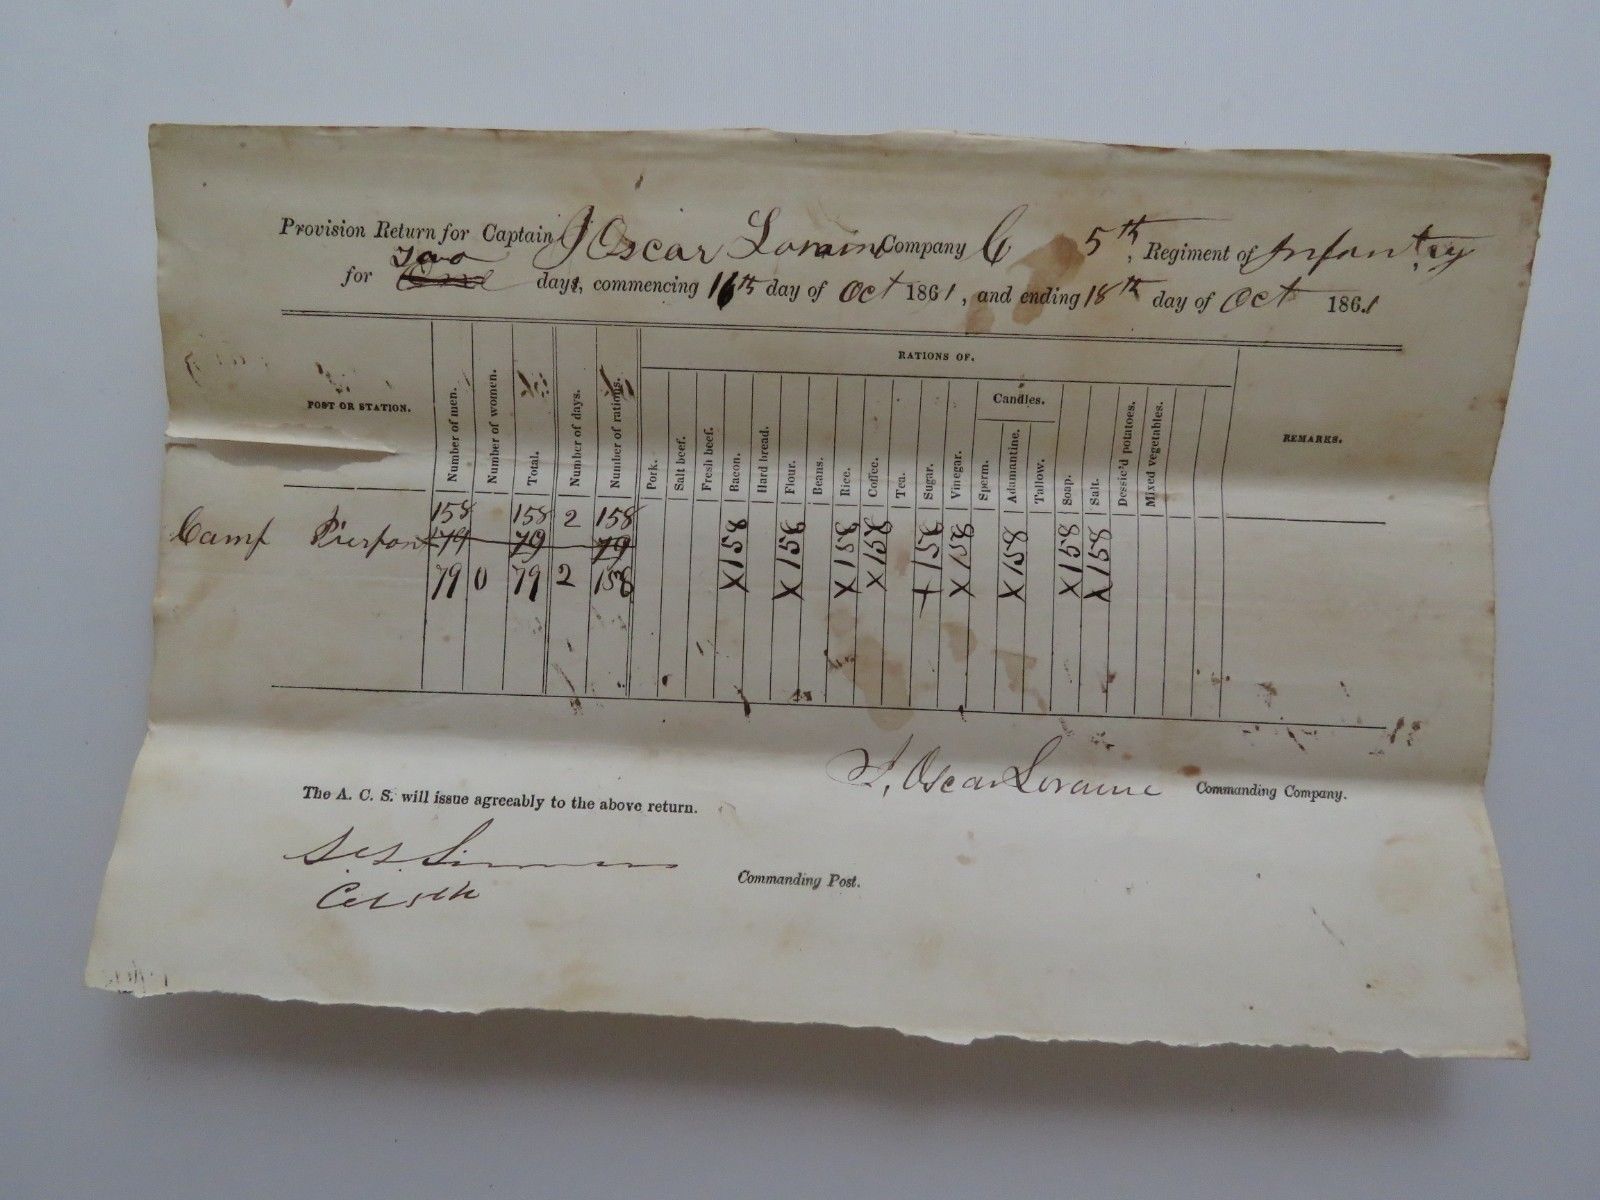 Provision Return for Captain J Oscar Loraine Company C 5th, Regiment of Infantry
Two
for One days, commencing 16th day of Oct 1861, and ending 18th day of Oct 1861
RATIONS OF.
POST OR STATION. Number of men. Number of women. Total. Number of days. Number of rations. Pork. Salt beef. Fresh beef. Bacon. Hard bread. Flour. Beans. Rice. Coffee. Tea. Sugar. Vinegar. Candles. Sperm. Adamantine. Tallow. Soap. Salt. Dessic'd potatoes. Mixed vegetables. REMARKS.
158 158 2 158
Camp Pierpont 79 79 79
79 0 79 2 158 X158 X158 X158 X158 X158 X158 X158 X158 X158
J, Oscar Loraine Commanding Company.
The A. C. S. will issue agreeably to the above return.
Commanding Post.
Col 5th